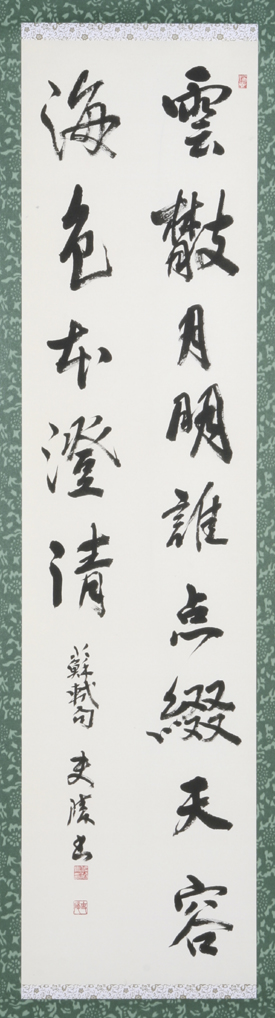 雲散月明誰点綴天容
海色本澄清
蘇軾句